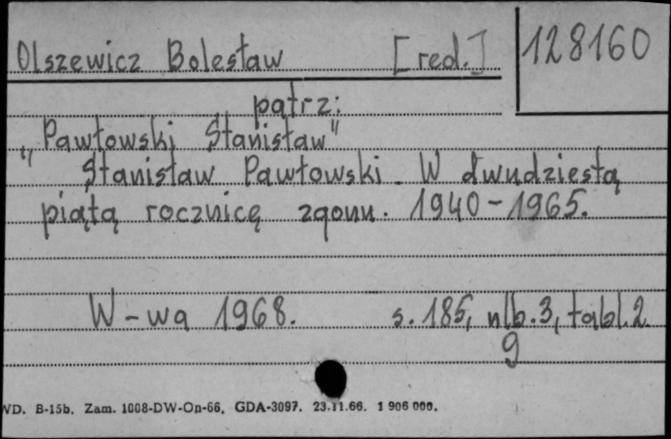 Olszewicz Bolesław [red.] 128160
patrz:
"Pawłowski Stanisław"
Stanisław Pawłowski. W dwudziestą
piątą rocznicę zgonu. 1940-1965.
W-wa 1968. s. 185, nlb. 3, tabl. 2
9
WD. B-15b. Zam. 1008-DW-On-66. GDA-3097. 23.11.66. 1 906 000.